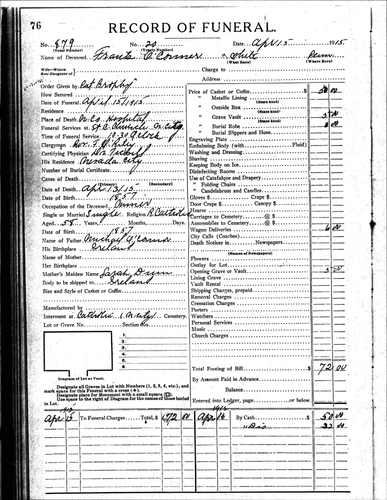 76
RECORD OF FUNERAL.
No. 879 No. 20 Date Apr 15 1915
(Total Number) (Yearly Number)
Name of Deceased, Frank O'Conner White
(What Race) (Where Born)
Charge to
Address
Order Given by Pat Brophy
How Secured
Date of Funeral April 15/1915
Residence
Place of Death N. Co. Hospital
Funeral Services at
Time of Funeral Service
Clergyman
Certifying Physician
His Residence Nevada City
Number of Burial Certificate
Cause of Death
(Primary) (Secondary)
Date of Death Apr. 13/15
Date of Birth 1857
Occupation of the Deceased
Single or Married Single Religion R. Catholic
Aged 58 Years, Months, Days.
Date of Birth 1857
Name of Father Michael O'Connor
His Birthplace Ireland
Name of Mother
Her Birthplace
Mother's Maiden Name Sarah Dunn
Body to be shipped to Ireland
Size and Style of Casket or Coffin
Manufactured by
Interment at Catholic (N. City) Cemetery.
Lot or Grave No. Section No.
1
2
3
4
5
6
Diagram of Lot or Vault.
Designate all Graves in Lot with Numbers (1, 2, 3, 4, etc.), and mark space for this Funeral with a cross (+).
Designate place for Monument with a small square (□).
Use space in the right of Diagram for the names of those buried in Lot.
Price of Casket or Coffin $ 50 00
" Metallic Lining
(State kind)
" Outside Box
(State kind)
" Grave Vault
(State kind)
" Burial Robe
(State kind)
Burial Slippers and Hose
Engraving Plate
Embalming Body (with Fluid)
Washing and Dressing
Shaving
Keeping Body on Ice
Disinfecting Rooms
Use of Catafalque and Drapery
" Folding Chairs
" Candelabrum and Candles
Gloves $ Crape $
Door Crape $ Canopy $
Hearse
Carriages to Cemetery
Automobiles to Cemetery
Wagon Deliveries 6 00
City Calls (Coaches)
Death Notices in Newspapers
(Names of Newspapers)
Flowers
Outlay for Lot
Opening Grave or Vault
Lining Grave
Vault Rental
Shipping Charges, prepaid
Removal Charges
Cremation Charges
Porters
Watchers
Personal Services
Music
Church Charges
Total Footing of Bill $ 72 00
By Amount Paid in Advance
Balance
Entered into Ledger, page or below.
Apr 15 To Funeral Charges Total, $ 72 00 Apr 16 By Cash $ 50 00
22 00